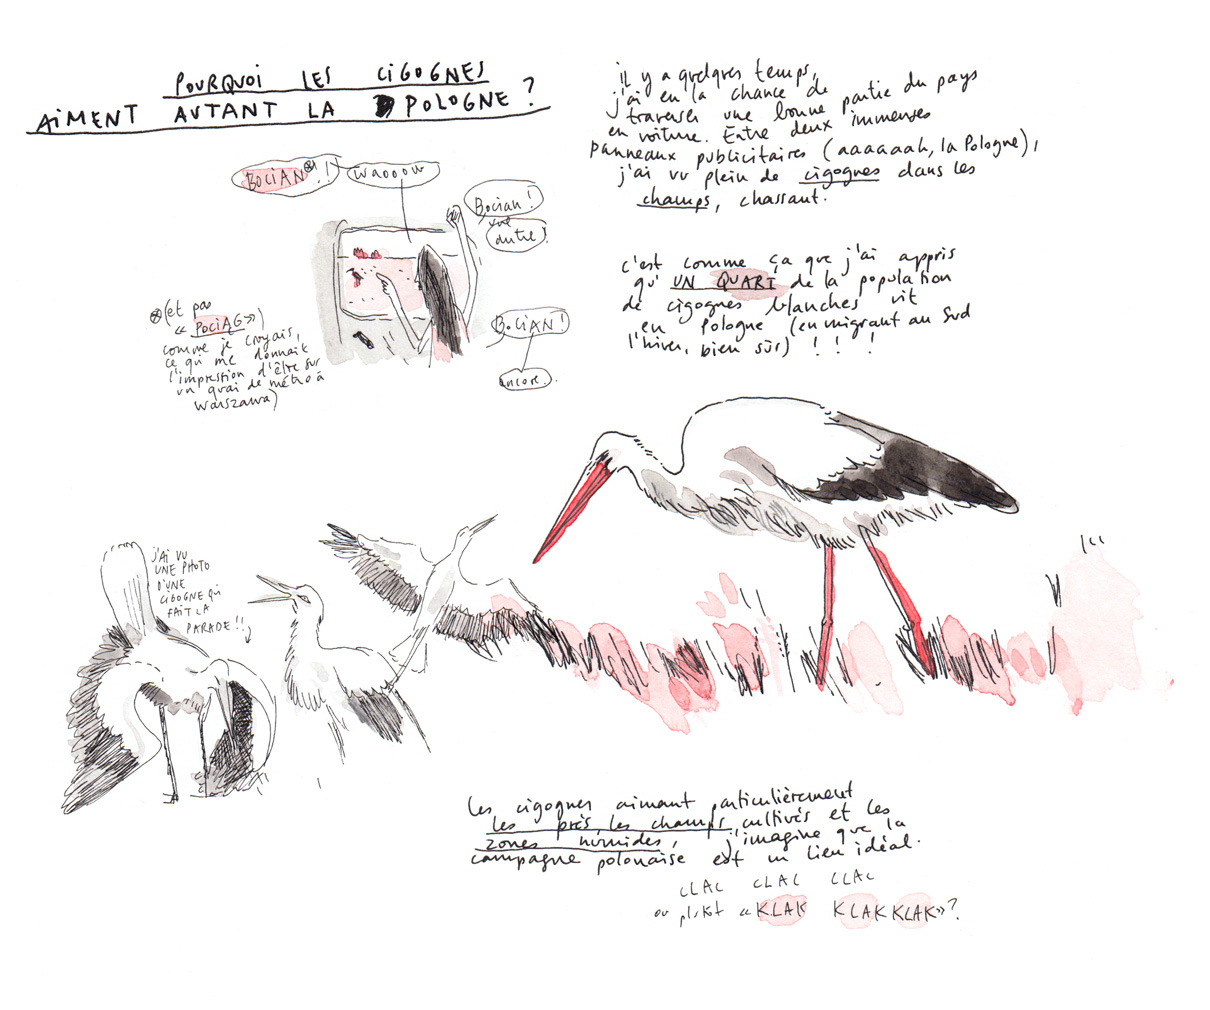 POURQUOI LES CIGOGNES
AIMENT AUTANT LA POLOGNE ?
il y a quelques temps,
j'ai eu la chance de
traverser une bonne partie du pays
en voiture. Entre deux immenses
panneaux publicitaires (aaaaaah, la Pologne),
j'ai vu plein de cigognes dans les
champs, chassant.
BOCIAN* !
waooow
Bocian !
une
autre !
BOCIAN !
encore.
*(et pas
« POCIAG »)
comme je croyais,
ce qui me donnait
l'impression d'être sur
un quai de métro à
Warszawa)
c'est comme ça que j'ai appris
qu'UN QUART de la population
de cigognes blanches vit
en Pologne (en migrant au Sud
l'hiver, bien sûr) ! ! !
J'AI VU
UNE PHOTO
D'UNE
CIGOGNE QUI
FAIT LA
PARADE !!
Les cigognes aimant particulièrement
les prés, les champs cultivés et les
zones humides, j'imagine que la
campagne polonaise est un lieu idéal.
CLAC CLAC CLAC
ou plutôt « KLAK KLAK KLAK » ?